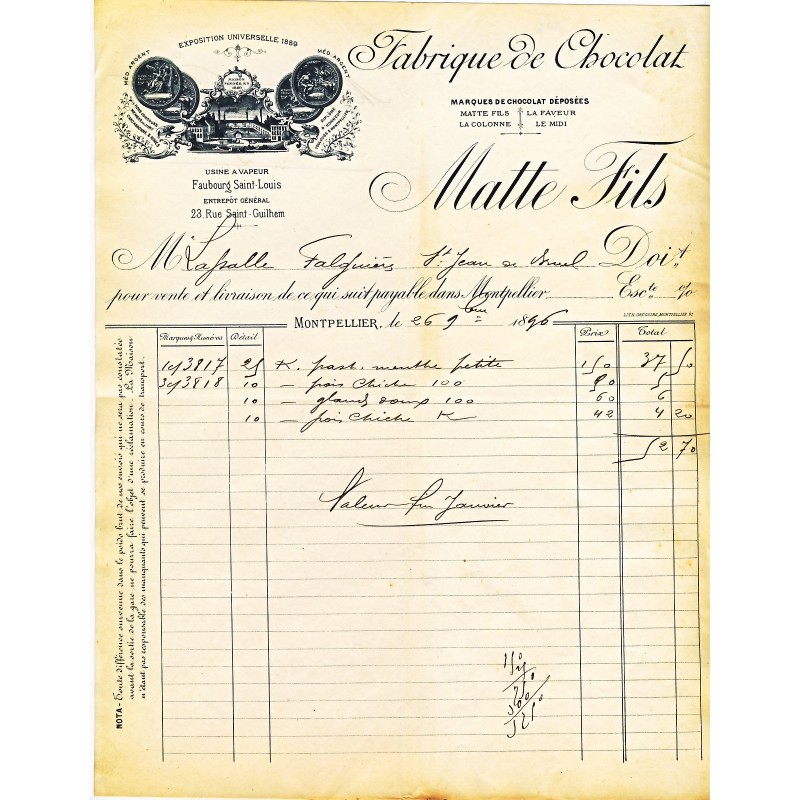 EXPOSITION UNIVERSELLE 1889
MÉD. ARGENT
MÉD. ARGENT
MAISON
FONDÉE EN
Fabrique de Chocolat
MARQUES DE CHOCOLAT DÉPOSÉES
MATTE FILS LA FAVEUR
LA COLONNE LE MIDI
USINE A VAPEUR
Faubourg Saint-Louis
ENTREPÔT GÉNÉRAL
23, Rue Saint-Guilhem
Matte Fils
M Lassalle Falguière St Jean de Bruel Doit
pour vente et livraison de ce qui suit payable dans Montpellier Escte %
LITH. GRÉGOIRE, MONTPELLIER
MONTPELLIER, le 26 9bre 1896
Marques & Numéros Détail Prix Total
3817 25 K. past. menthe petite 150 37 50
3818 10 — pois chiche 100 50 5
10 — glands doux 100 60 6
10 — pois chiche K 42 4 20
52 70
Valeur fin Janvier
150
25
750
300
NOTA - Toute différence survenue dans le poids brut de nos envois qui ne sera pas constatée
avant la sortie de la gare ne pourra faire l'objet d'une réclamation. La Maison
n'étant pas responsable des manquants qui peuvent se produire en cours de transport.